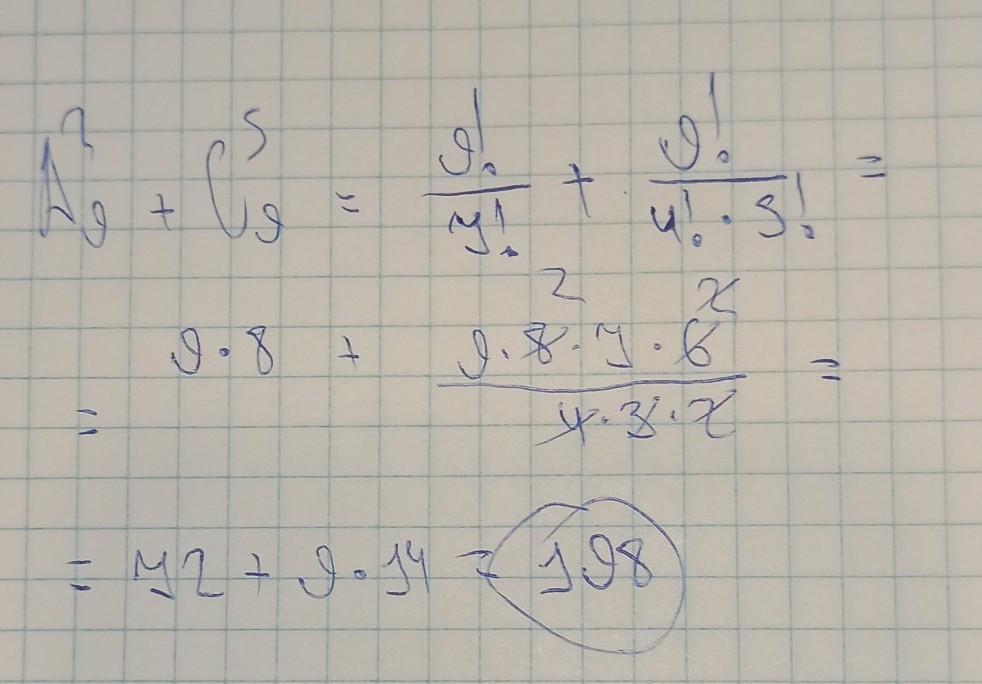 A₉² + C₉⁵ = 9!/7! + 9!/(4! · 5!) =
= 9 · 8 + (9 · 8̶ 2 · 7 · 6̶ 2̶)/(4̶ · 3̶ · 2̶) =
= 72 + 9 · 14 = 198